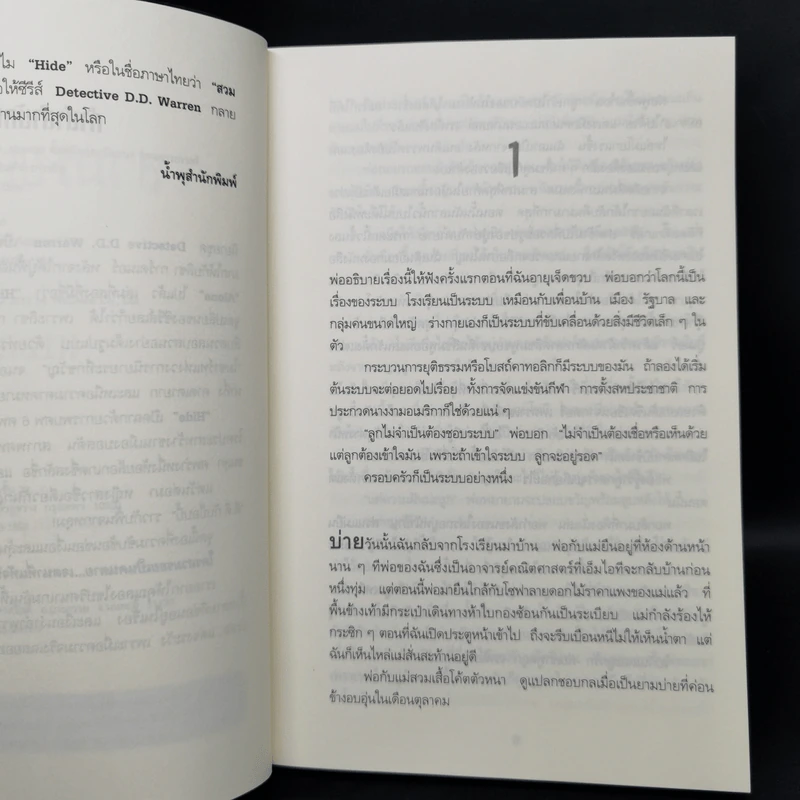 ไม “Hide” หรือในชื่อภาษาไทยว่า “สวม
ให้ซีรีส์ Detective D.D. Warren กลาย
านมากที่สุดในโลก
น้ำพุสำนักพิมพ์
1
พ่ออธิบายเรื่องนี้ให้ฟังครั้งแรกตอนที่ฉันอายุเจ็ดขวบ พ่อบอกว่าโลกนี้เป็น
เรื่องของระบบ โรงเรียนเป็นระบบ เหมือนกับเพื่อนบ้าน เมือง รัฐบาล และ
กลุ่มคนขนาดใหญ่ ร่างกายเองก็เป็นระบบที่ขับเคลื่อนด้วยสิ่งมีชีวิตเล็ก ๆ ใน
ตัว
กระบวนการยุติธรรมหรือโบสถ์คาทอลิกก็มีระบบของมัน ถ้าลองได้เริ่ม
ต้นระบบจะต่อยอดไปเรื่อย ทั้งการจัดแข่งขันกีฬา การตั้งสหประชาชาติ การ
ประกวดนางงามอเมริกาก็ใช่ด้วยแน่ ๆ
“ลูกไม่จำเป็นต้องชอบระบบ” พ่อบอก “ไม่จำเป็นต้องเชื่อหรือเห็นด้วย
แต่ลูกต้องเข้าใจมัน เพราะถ้าเข้าใจระบบ ลูกจะอยู่รอด”
ครอบครัวก็เป็นระบบอย่างหนึ่ง
บ่ายวันนั้นฉันกลับจากโรงเรียนมาบ้าน พ่อกับแม่ยืนอยู่ที่ห้องด้านหน้า
นาน ๆ ทีพ่อของฉันซึ่งเป็นอาจารย์คณิตศาสตร์ที่เอ็มไอทีจะกลับบ้านก่อน
หนึ่งทุ่ม แต่ตอนนี้พ่อมายืนใกล้กับโซฟาลายดอกไม้ราคาแพงของแม่แล้ว ที่
พื้นข้างเท้ามีกระเป๋าเดินทางห้าใบกองซ้อนกันเป็นระเบียบ แม่กำลังร้องไห้
กระซิก ๆ ตอนที่ฉันเปิดประตูหน้าเข้าไป ถึงจะรีบเบือนหนีไม่ให้เห็นน้ำตา แต่
ฉันก็เห็นไหล่แม่สั่นสะท้านอยู่ดี
พ่อกับแม่สวมเสื้อโค้ตตัวหนา ดูแปลกชอบกลเมื่อเป็นยามบ่ายที่ค่อน
ข้างอบอุ่นในเดือนตุลาคม